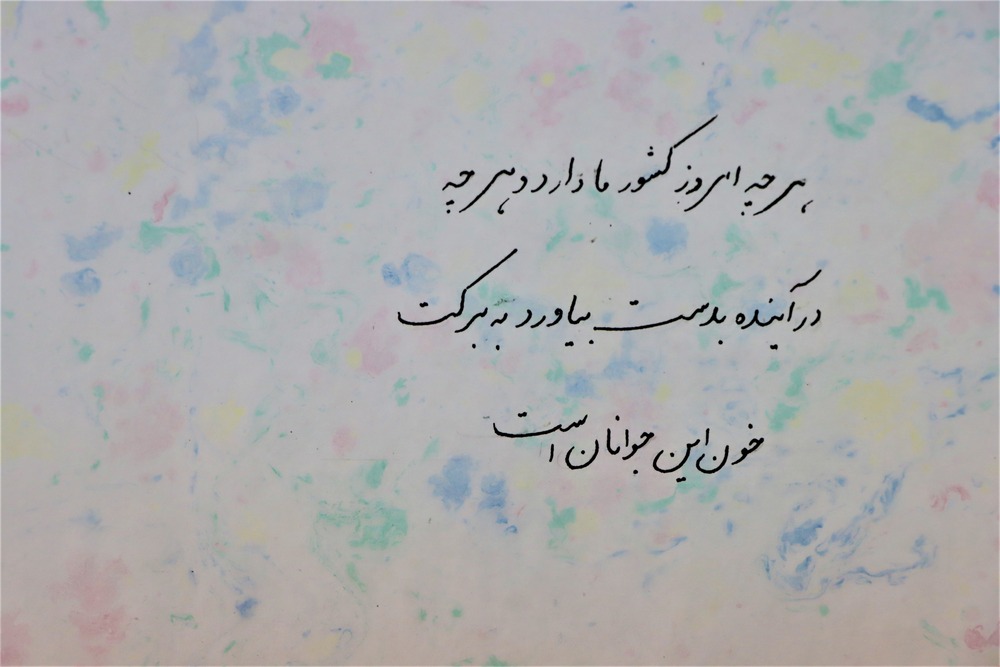 هر چه امروز کشور ما دارد و هر چه
در آینده بدست بیاورد به برکت
خون این جوانان است